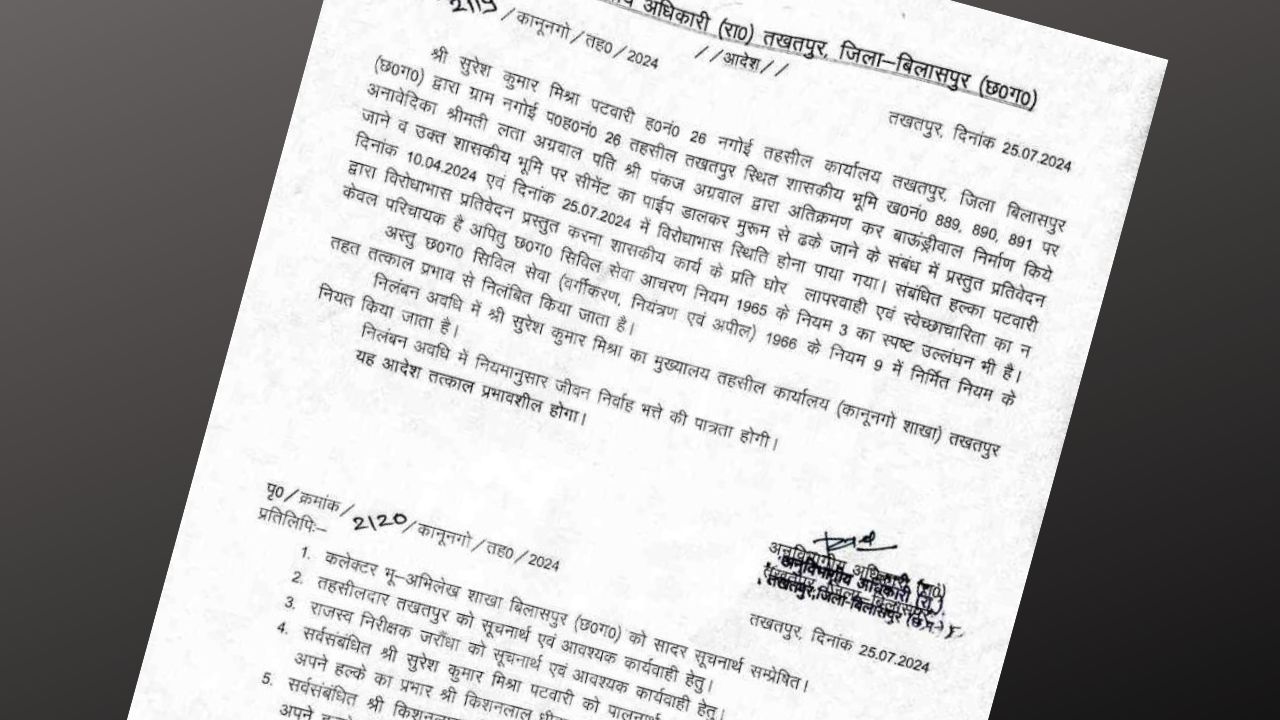 अधिकारी (रा0) तखतपुर, जिला–बिलासपुर (छ0ग0)
2119 /कानूनगो/तह0/2024
//आदेश//
तखतपुर, दिनांक 25.07.2024
श्री सुरेश कुमार मिश्रा पटवारी ह0नं0 26 नगोई तहसील कार्यालय तखतपुर, जिला बिलासपुर
(छ0ग0) द्वारा ग्राम नगोई प0ह0नं0 26 तहसील तखतपुर स्थित शासकीय भूमि ख0नं0 889, 890, 891 पर
अनावेदिका श्रीमती लता अग्रवाल पति श्री पंकज अग्रवाल द्वारा अतिक्रमण कर बाऊंड्रीवाल निर्माण किये
जाने व उक्त शासकीय भूमि पर सीमेंट का पाईप डालकर मुरूम से ढके जाने के संबंध में प्रस्तुत प्रतिवेदन
दिनांक 10.04.2024 एवं दिनांक 25.07.2024 में विरोधाभास स्थिति होना पाया गया। संबंधित हल्का पटवारी
द्वारा विरोधाभास प्रतिवेदन प्रस्तुत करना शासकीय कार्य के प्रति घोर लापरवाही एवं स्वेच्छाचारिता का न
केवल परिचायक है अपितु छ0ग0 सिविल सेवा आचरण नियम 1965 के नियम 3 का स्पष्ट उल्लंघन भी है।
अस्तु छ0ग0 सिविल सेवा (वर्गीकरण, नियंत्रण एवं अपील) 1966 के नियम 9 में निर्मित नियम के
तहत तत्काल प्रभाव से निलंबित किया जाता है।
निलंबन अवधि में श्री सुरेश कुमार मिश्रा का मुख्यालय तहसील कार्यालय (कानूनगो शाखा) तखतपुर
नियत किया जाता है।
निलंबन अवधि में नियमानुसार जीवन निर्वाह भत्ते की पात्रता होगी।
यह आदेश तत्काल प्रभावशील होगा।
अनुविभागीय अधिकारी (रा0)
अनुविभागीय अधिकारी (रा.)
तखतपुर,जिला-बिलासपुर (छ.ग.)
पृ0/क्रमांक/ 2120/कानूनगो/तह0/2024
तखतपुर, दिनांक 25.07.2024
प्रतिलिपिः–
1. कलेक्टर भू–अभिलेख शाखा बिलासपुर (छ0ग0) को सादर सूचनार्थ सम्प्रेषित।
2. तहसीलदार तखतपुर को सूचनार्थ एवं आवश्यक कार्यवाही हेतु।
3. राजस्व निरीक्षक जरौंधा को सूचनार्थ एवं आवश्यक कार्यवाही हेतु।
4. सर्वसंबंधित श्री सुरेश कुमार मिश्रा पटवारी को पालनार्थ
अपने हल्के का प्रभार श्री किशनलाल
5. सर्वसंबंधित श्री किशनलाल
अपने